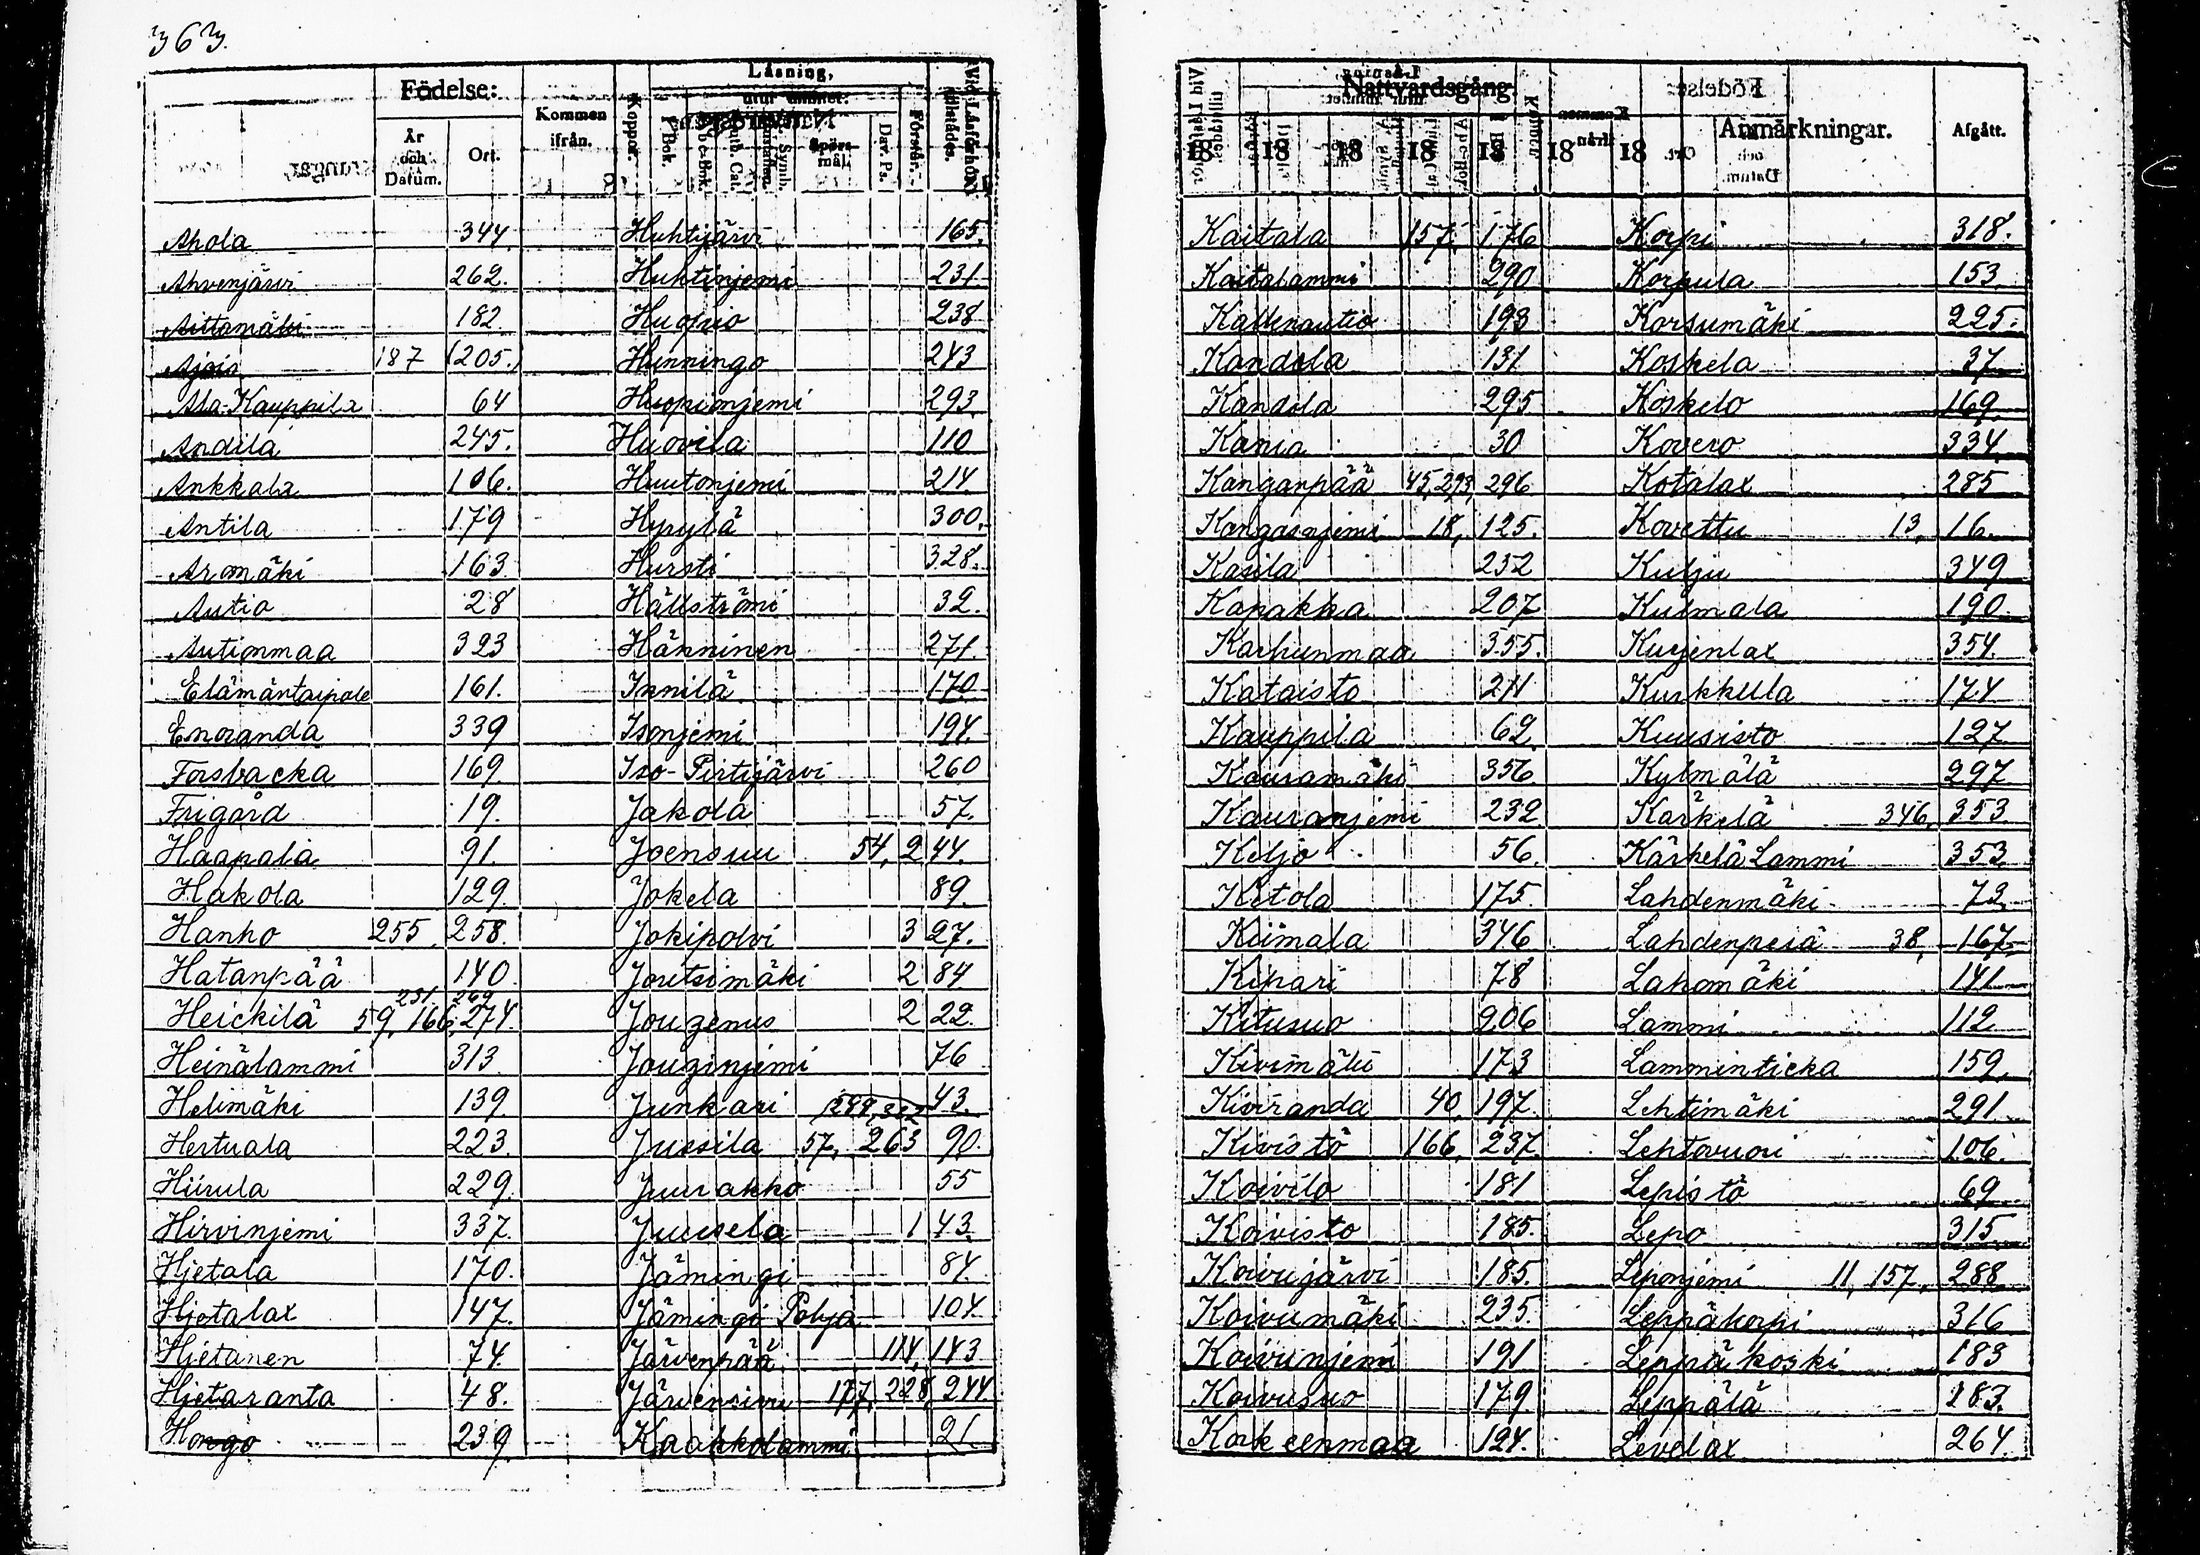 363.
Födelse:
År och Datum.
Ort.
Kommen ifrån.
Koppor.
Läsning,
utur minnet:
Förstår.
Vid Läsförhör tillstädes.
Ahola 344.
Ahvenjärvi 262.
Aittamäki 182
187 (205.)
Ala-Kauppila 64
Andila 245.
Ankkala 106.
Antila 179
Aromäki 163
Autio 28
Autionmaa 323
Elämäntaipale 161.
Enoranda 339
Forsbacka 169
Frigård 19.
Haapala 91.
Hakola 129.
Hanho 255, 258.
Hatanpää 140
231. 269
Heickilä 59, 166, 274.
Heinälammi 313
Helimäki 139.
Hertuala 223.
Hiirula 229.
Hirvinjemi 337.
Hjetala 170.
Hjetalax 147.
Hjetanen 74.
Hjetaranta 48.
Hongo 239.
Huhtijärvi 165.
Huhtinjemi 231.
Huopio 238
Hinningo 243
Huopionjemi 293
Huovila 110
Huutonjemi 214.
Hyrylä 300.
Hursti 328.
Hällströmi 32.
Hänninen 271.
Innilä 170
Isonjemi 194.
Iso-Pirttijärvi 260
Jakola 57.
Joensuu 54, 244.
Jokela 89.
Jokipolvi 327.
Joutsimäki 284
Jougenus 222.
Jouginjemi 76
Junkari 43
Jussila 57, 263 90.
Juurakko 55
Juusela 143.
Jämingi 84.
Jämingi Pohja 104.
Järvenpää 114, 143
Järvensivu 177, 228, 244
Kaakkolammi 21
Nattvardsgång.
18 18 18 18 18 18 18
Anmärkningar.
Afgått.
Kaitala 157, 176
Kaitalammi 290
Kallenautio 193
Kandola 131
Kandola 295
Kania 30
Kanganpää 45, 293, 296
Kangasnjemi 18, 125.
Kasila 232
Kapakka 207
Karhunmaa 355.
Kataisto 211
Kauppila 62
Kauramäki 356
Kauranjemi 232
Keljo 56.
Ketola 175.
Kiimala 346
Kipari 78
Kitusuo 206
Kivimäki 173
Kiviranda 40, 197.
Kivistö 166, 237
Koivilo 181
Koivisto 185.
Koivujärvi 185.
Koivumäki 235.
Koivunjemi 191
Koivusuo 179.
Korkeenmaa 124.
Korpi 318.
Korpula 153
Korsumäki 225.
Koskela 37.
Koskelo 169
Kovero 334.
Kotalax 285
Kovettu 13, 16.
Kulju 349
Kulmala 190
Kurjenlax 354.
Kurkkula 174
Kuusisto 127
Kylmälä 297
Kärkelä 346, 353.
Kärkelä Lammi 353
Lahdenmäki 73
Lahdenperä 38, 167
Lahomäki 141
Lammi 112
Lamminticka 159.
Lehtimäki 291
Lehtovuori 106.
Lepistö 69
Lepo 315.
Leponjemi 11, 157, 288
Leppäkorpi 316
Leppäkoski 183
Leppälä 183.
Levelax 264.